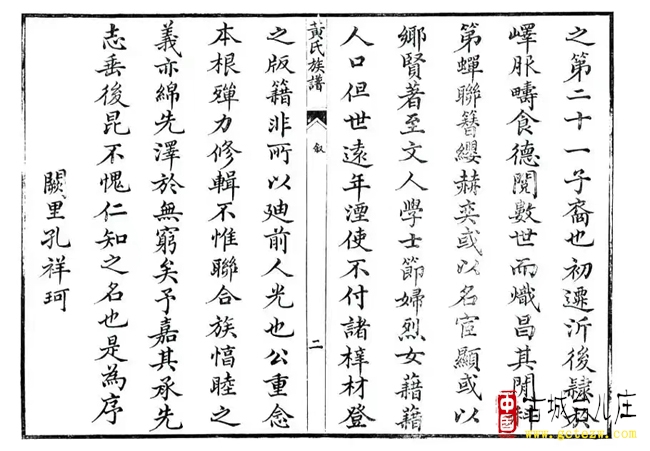 之第二十一子裔也初遷沂後隸
嶧服疇食德閱數世而熾昌其間科
第蟬聯簪纓赫奕或以名宦顯或以
鄉賢著至文人學士節婦烈女藉藉
人口但世遠年湮使不付諸梓材登
黃氏族譜
敘
二
之版籍非所以廸前人光也公重念
本根殫力修輯不惟聯合族慉睦之
義亦綿先澤於無窮矣予嘉其承先
志垂後昆不愧仁知之名也是為序
闕里孔祥珂
中國
古城台儿庄
www.gctozw.com